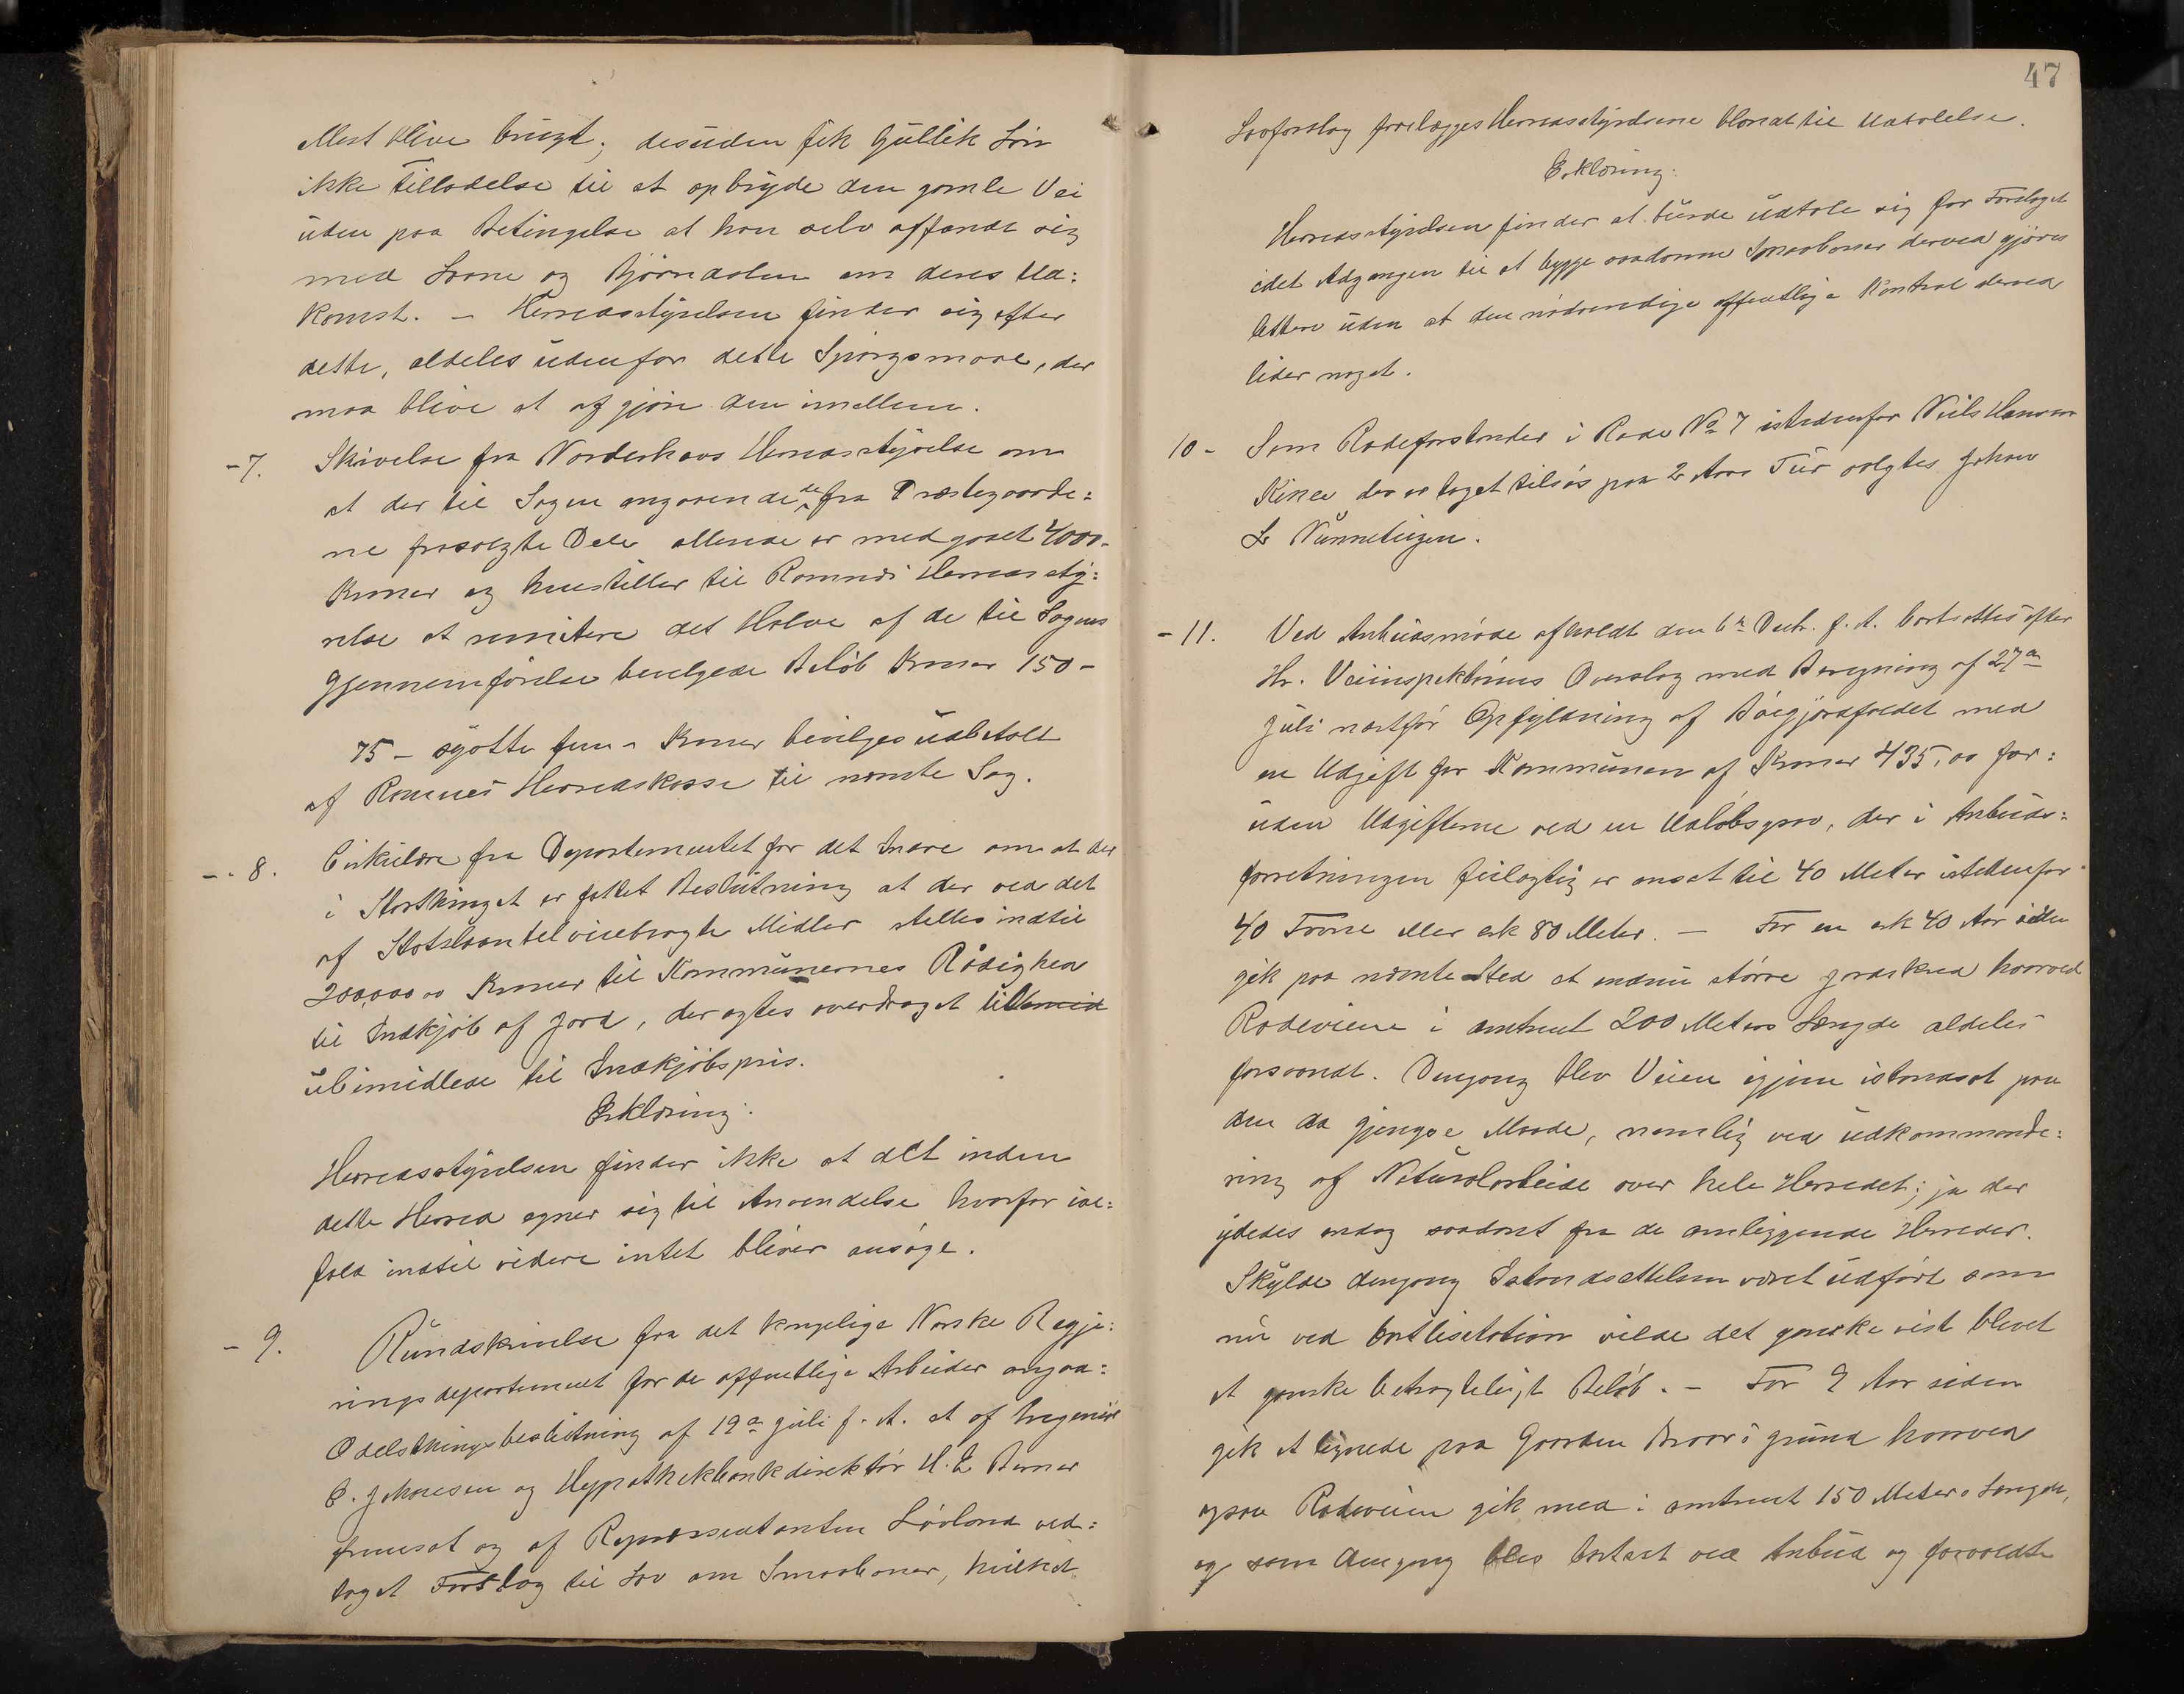 Mest blive brugt; desuden fik Gullik Lön
ikke Tilladelse til at opbryde den gamle Vei
uden paa Betingelse at han selv affandt sig
med Loone og Bjørndalen om deres Ud=
komst. – Herredsstyrelsen finder sig efter
dette, aldeles udenfor dette Spörgsmaal, der
maa blive at afgjöre dem imellem.
- 7. Skrivelse fra Norderhovs Herredsstyrelse om
at der til Sagen angaaende de fra Præstegaarde=
ne frasolgte Dele allerede er medgaaet 400.
Kroner og henstiller til Romnæs Herredssty=
relse at remitere det Halve af de til Sagens
Gjennemförelse bevilgede Belöb Kroner 150 –
75 – sytti fem – Kroner bevilges udbetalt
af Romnes Herredskasse til nævnte Sag.
- 8. Cirkulære fra Departementet for det Indre om at der
i Storthinget er fattet Beslutning at der ved det
af Statslaan tilveiebragte Midler stilles indtil
200,000 00 Kroner til Kommunernes Rådighed
til Indkjöb af Jord, der agtes overdraget
ubemidlede til Indkjöbspris.
Erklæring:
Herredsstyrelsen finder ikke at dLt inden
dette Herred egner sig til Anvendelse hvorfor ial=
fald indtil videre intet bliver ansøge.
- 9. Rundskrivelse fra det kongelige Norske Regje=
ringsdepartement for de offentlige Arbeider angaa=
Odelsthingsbeslutning af 19de Juli f. A. at af Ingeniör
C. Johnesen og Hypothekbankdirektör H. E Berner
fremsat og af Repræsentanten Lövland ved=
taget Forslag til Lov om Smaabaner, hvilket
47
Lovforslag forelægges Herredsstyrelserne blandt til Udtalelse.
Erklæring:
Herredsstyrelsen finder at burde udtale sig for Forslaget
idet Adgangen til at bygge saadanne Smaabaner derved gjöres
lettere uden at den nödvendige offentlige Kontrol derved
lider noget.
10 - Som Rodeforstander i Rode No 7 istedenfor Niels Hansen
Kise der er taget tilsøs paa 2 Aars Tur valgtes Johan
L Nünneteigen.
- 11. Ved Anbudsmöde afholdt den 6te Decbr. f. A. bortsattes efter
Hr. Veiinspektörens Overslag med Beregning af 27de
Juli næstför Opfyldning af Böigjordfaldet med
en Udgift for Kommunen af Kroner 435,00 for=
uden Udgifterne ved en Udlöbsgrav, der i Anbuds=
forretningen feilagtig er ansat til 40 Meter istedenfor
40 Favne eller ark 80 Meter. – For en ark 40 Aar siden
gik paa nævnte Sted et endnu större Jordskred hvorved
Rodeveiene i omtrent 200 Meters Længde aldeles
forsvandt. Dengang blev Veien igjen istandsat paa
den da gjengse Maade, nemlig ved udkommande=
ring af Naturalarbeide over hele Herredet; ja der
ydedes endog saadant fra de omliggende Herreder.
Skulde dengang Istandsættelsen været udfört som
nu ved Bortlisitation vilde det ganske vist blevet
et ganske betragteligt Belöb. – For 9 Aar siden
gik et lignede paa Gaarden grund hvorved
ogsaa Rodeveien gik med i omtrent 150 Meters Længde,
og som dengang blev bortsat ved Anbud og forvoldte